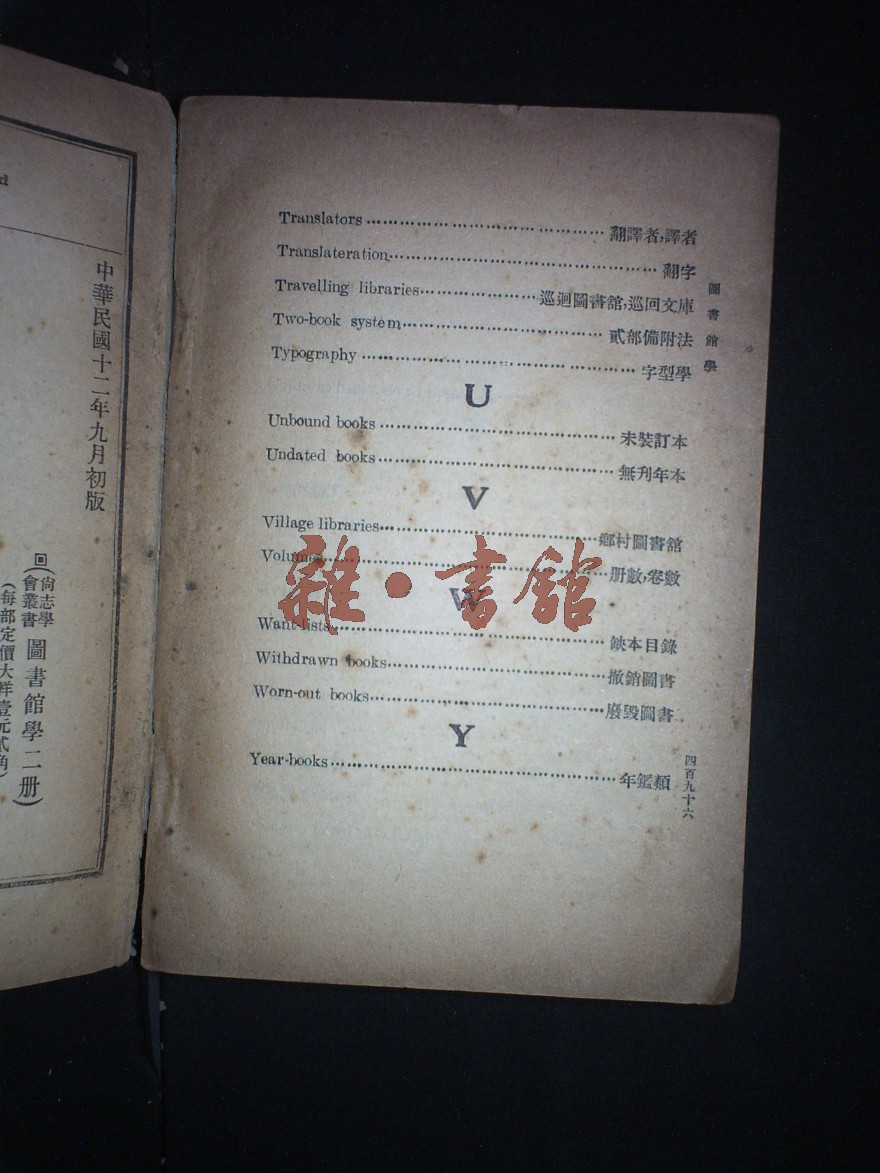 Translators 翻譯者,譯者
Translateration 翻字
Travelling libraries 巡迴圖書舘,巡回文庫
Two-book system 貳部備附法
Typography 字型學
U
Unbound books 未裝訂本
Undated books 無刋年本
V
Village libraries 鄉村圖書舘
Volumes 册數,卷數
W
Want-lists 缺本目錄
Withdrawn books 撤銷圖書
Worn-out books 廢毀圖書
Y
Year-books 年鑑類
圖書館學
四百九十六
中華民國十二年九月初版
(尙志學會叢書 圖書館學二册)
(每部定價大洋壹元貳角)
雜·書舘